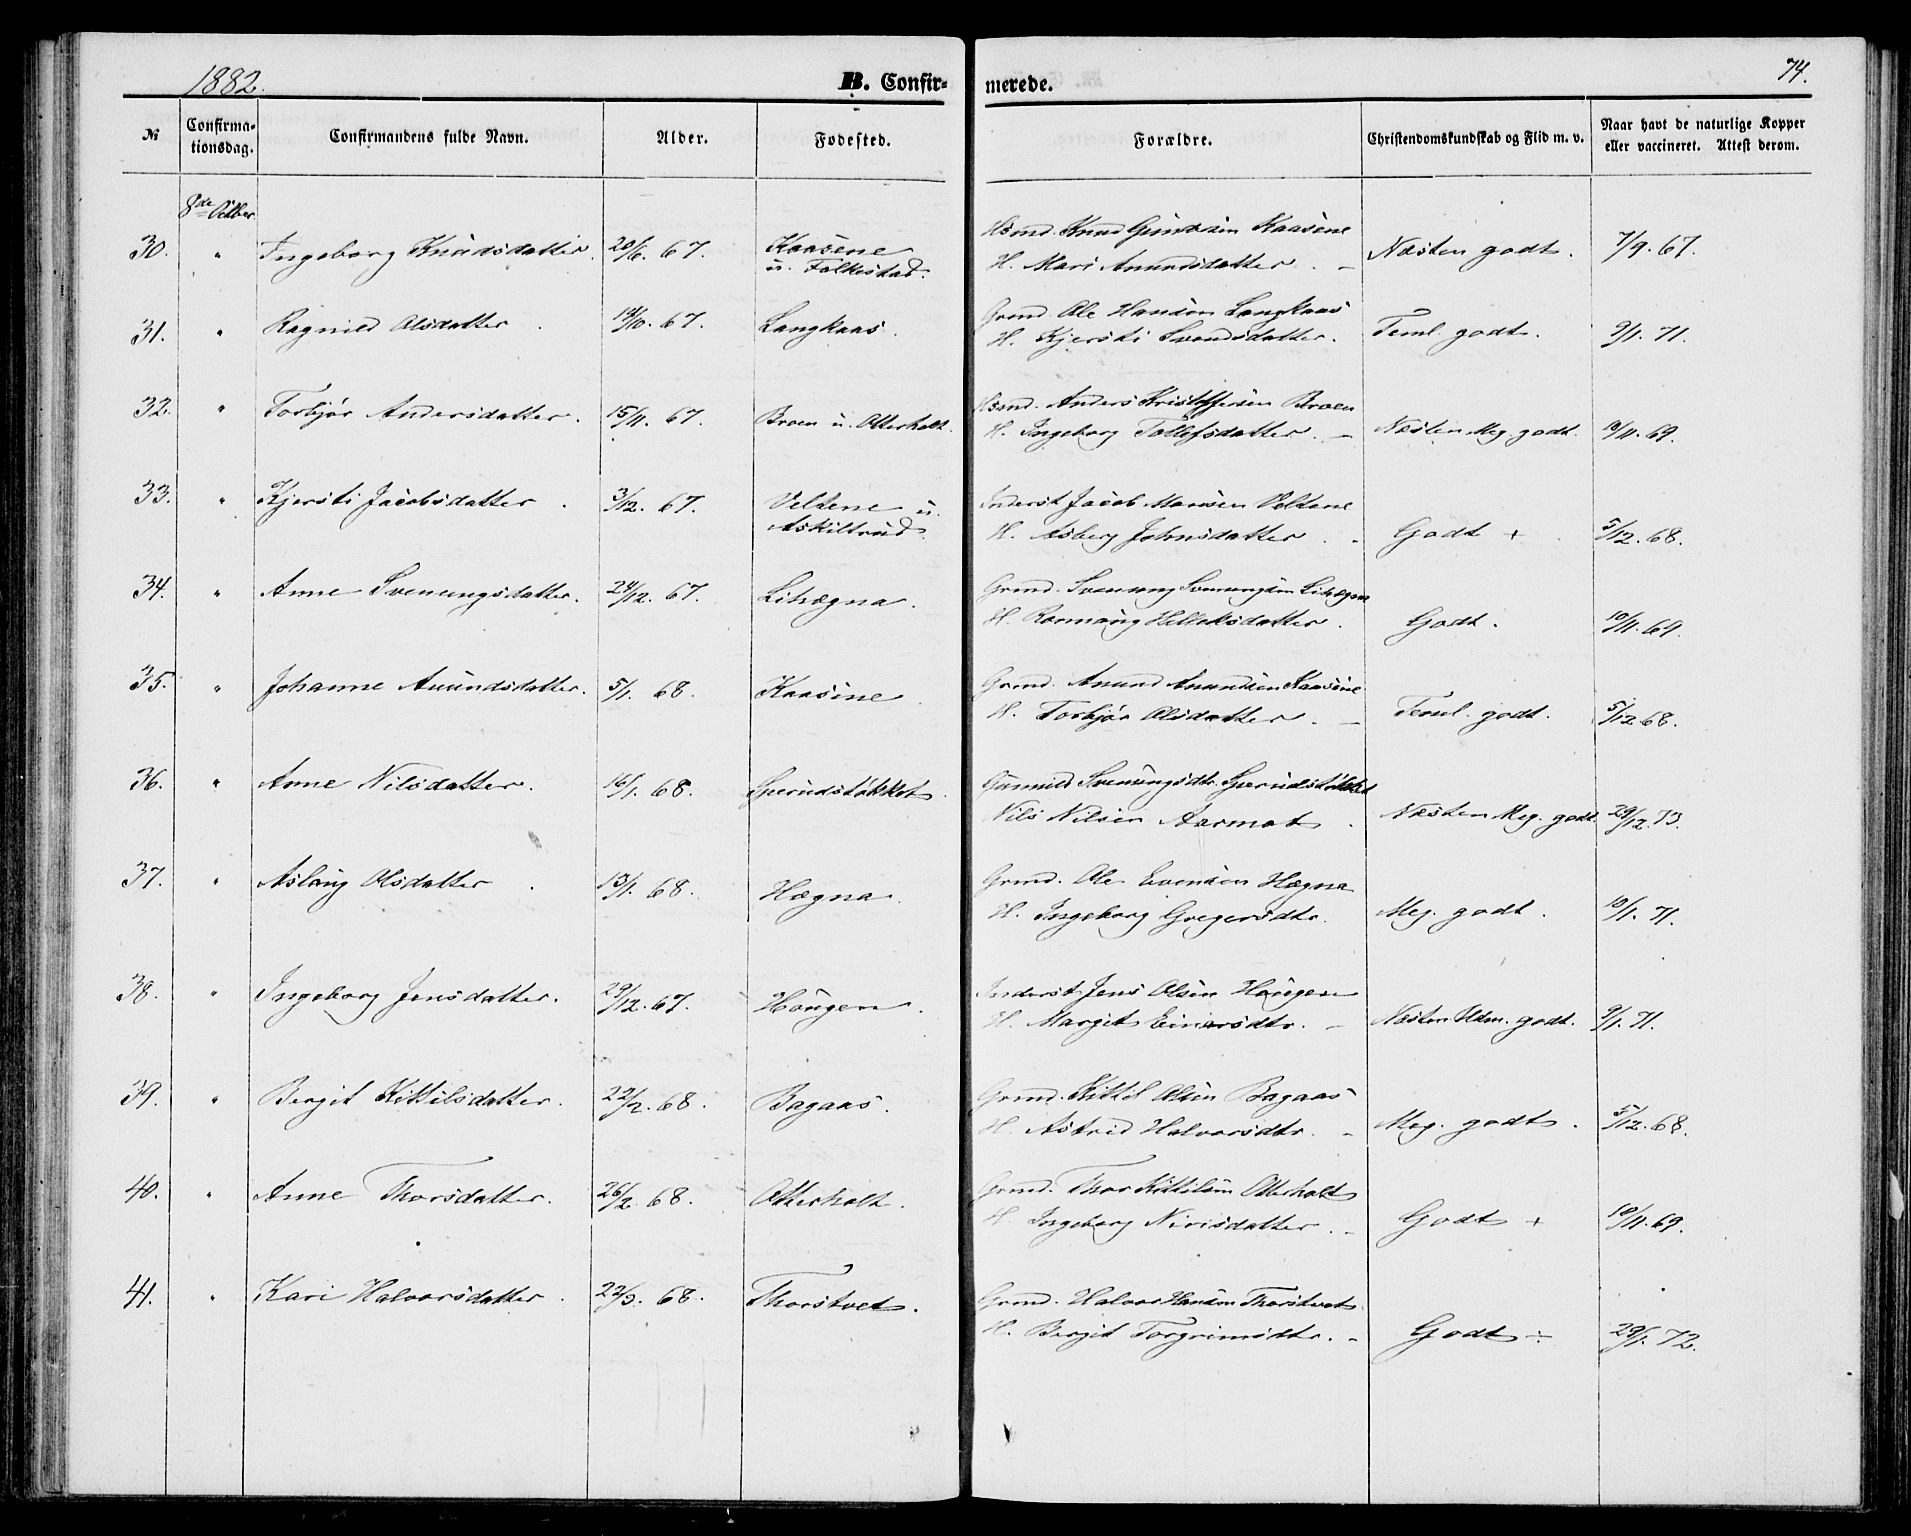 1882.
B. Confirmerede.
74.
№
Confirmationsdag.
Confirmandens fulde Navn.
Alder.
Fødested.
Forældre.
Christendomskundskab og Flid m. v.
Naar havt de naturlige Kopper eller vaccineret. Attest derom.
8de Octber
30. " Ingeborg Knudsdatter. 20/6. 67. Kaasene
u. Falkestad.
Hsmd. Knud Kaasene
H. Mari Anundsdatter. – Næsten godt. 7/9. 67.
31. " Ragnild Olsdatter. /10. 67. Langkaas.
Grmd. Ole Hansen Langkaas
H. Kjersti Svendsdatter. Teml. godt. 9/1. 71.
32. " Torbjør Andersdatter. 15/11. 67. Broen u. Otterholt.
Hsmd. Anders Kristoffersen Broen
H. Ingeborg Tollefsdatter. – Næsten Meg. godt. 10/11. 69.
33. " Kjersti Jacobsdatter. 3/12. 67. Veltene u.
Askiltrud.
Inderst Jacob Veltene
H. Asberg Johnsdatter. – Godt + 5/12. 68.
34. " Anne Svenungsdatter. 24/12. 67. Lihægna.
Grmd. Svenung Svenungsen Lihægna
H. Ronnaug Helleksdatter. Godt. 10/11. 69.
35. " Johanne Anundsdatter. 5/1. 68. Kaasine.
Grmd. Anund Anundsen Kaasine
H. Torbjør Olsdatter. – Teml. godt. 5/12 68.
36. " Anne Nilsdatter. 16/1. 68. Sperudstøkket.
Gunnild Svenungsdtr. Sperudstøkket
Nils Nilsen Aarmot. Næsten Meg. godt. 29/12. 73.
37. " Aslaug Olsdatter. 13/1. 68. Hægna.
Grmd. Ole Evensen Hægna
H. Ingeborg Gregersdtr. Meg. godt. 10/1. 71.
38. " Ingeborg Jensdatter. 29/12. 67. Haugen.
Inderst Jens Olsen Haugen
H. Margit Einarsdtr. – Næsten Udm. godt. 9/1. 71.
39. " Bergit Kittilsdatter. 22/2. 68. Bagaas.
Grmd. Kittil Olsen Bagaas
H. Astrid Halvorsdtr. – Meg. godt. 5/12. 68.
40. " Anne Thorsdatter. 26/2. 68. Otterholt.
Grmd. Thor Kittilsen Otterholt
H. Ingeborg Nirisdatter. – Godt + 10/11. 69.
41. " Kari Halvorsdatter. 22/3. 68. Thorstvet.
Grmd. Halvor Hansen Thorstvet
H. Bergit Torgrimsdtr. – Godt ÷ 29/1. 72.